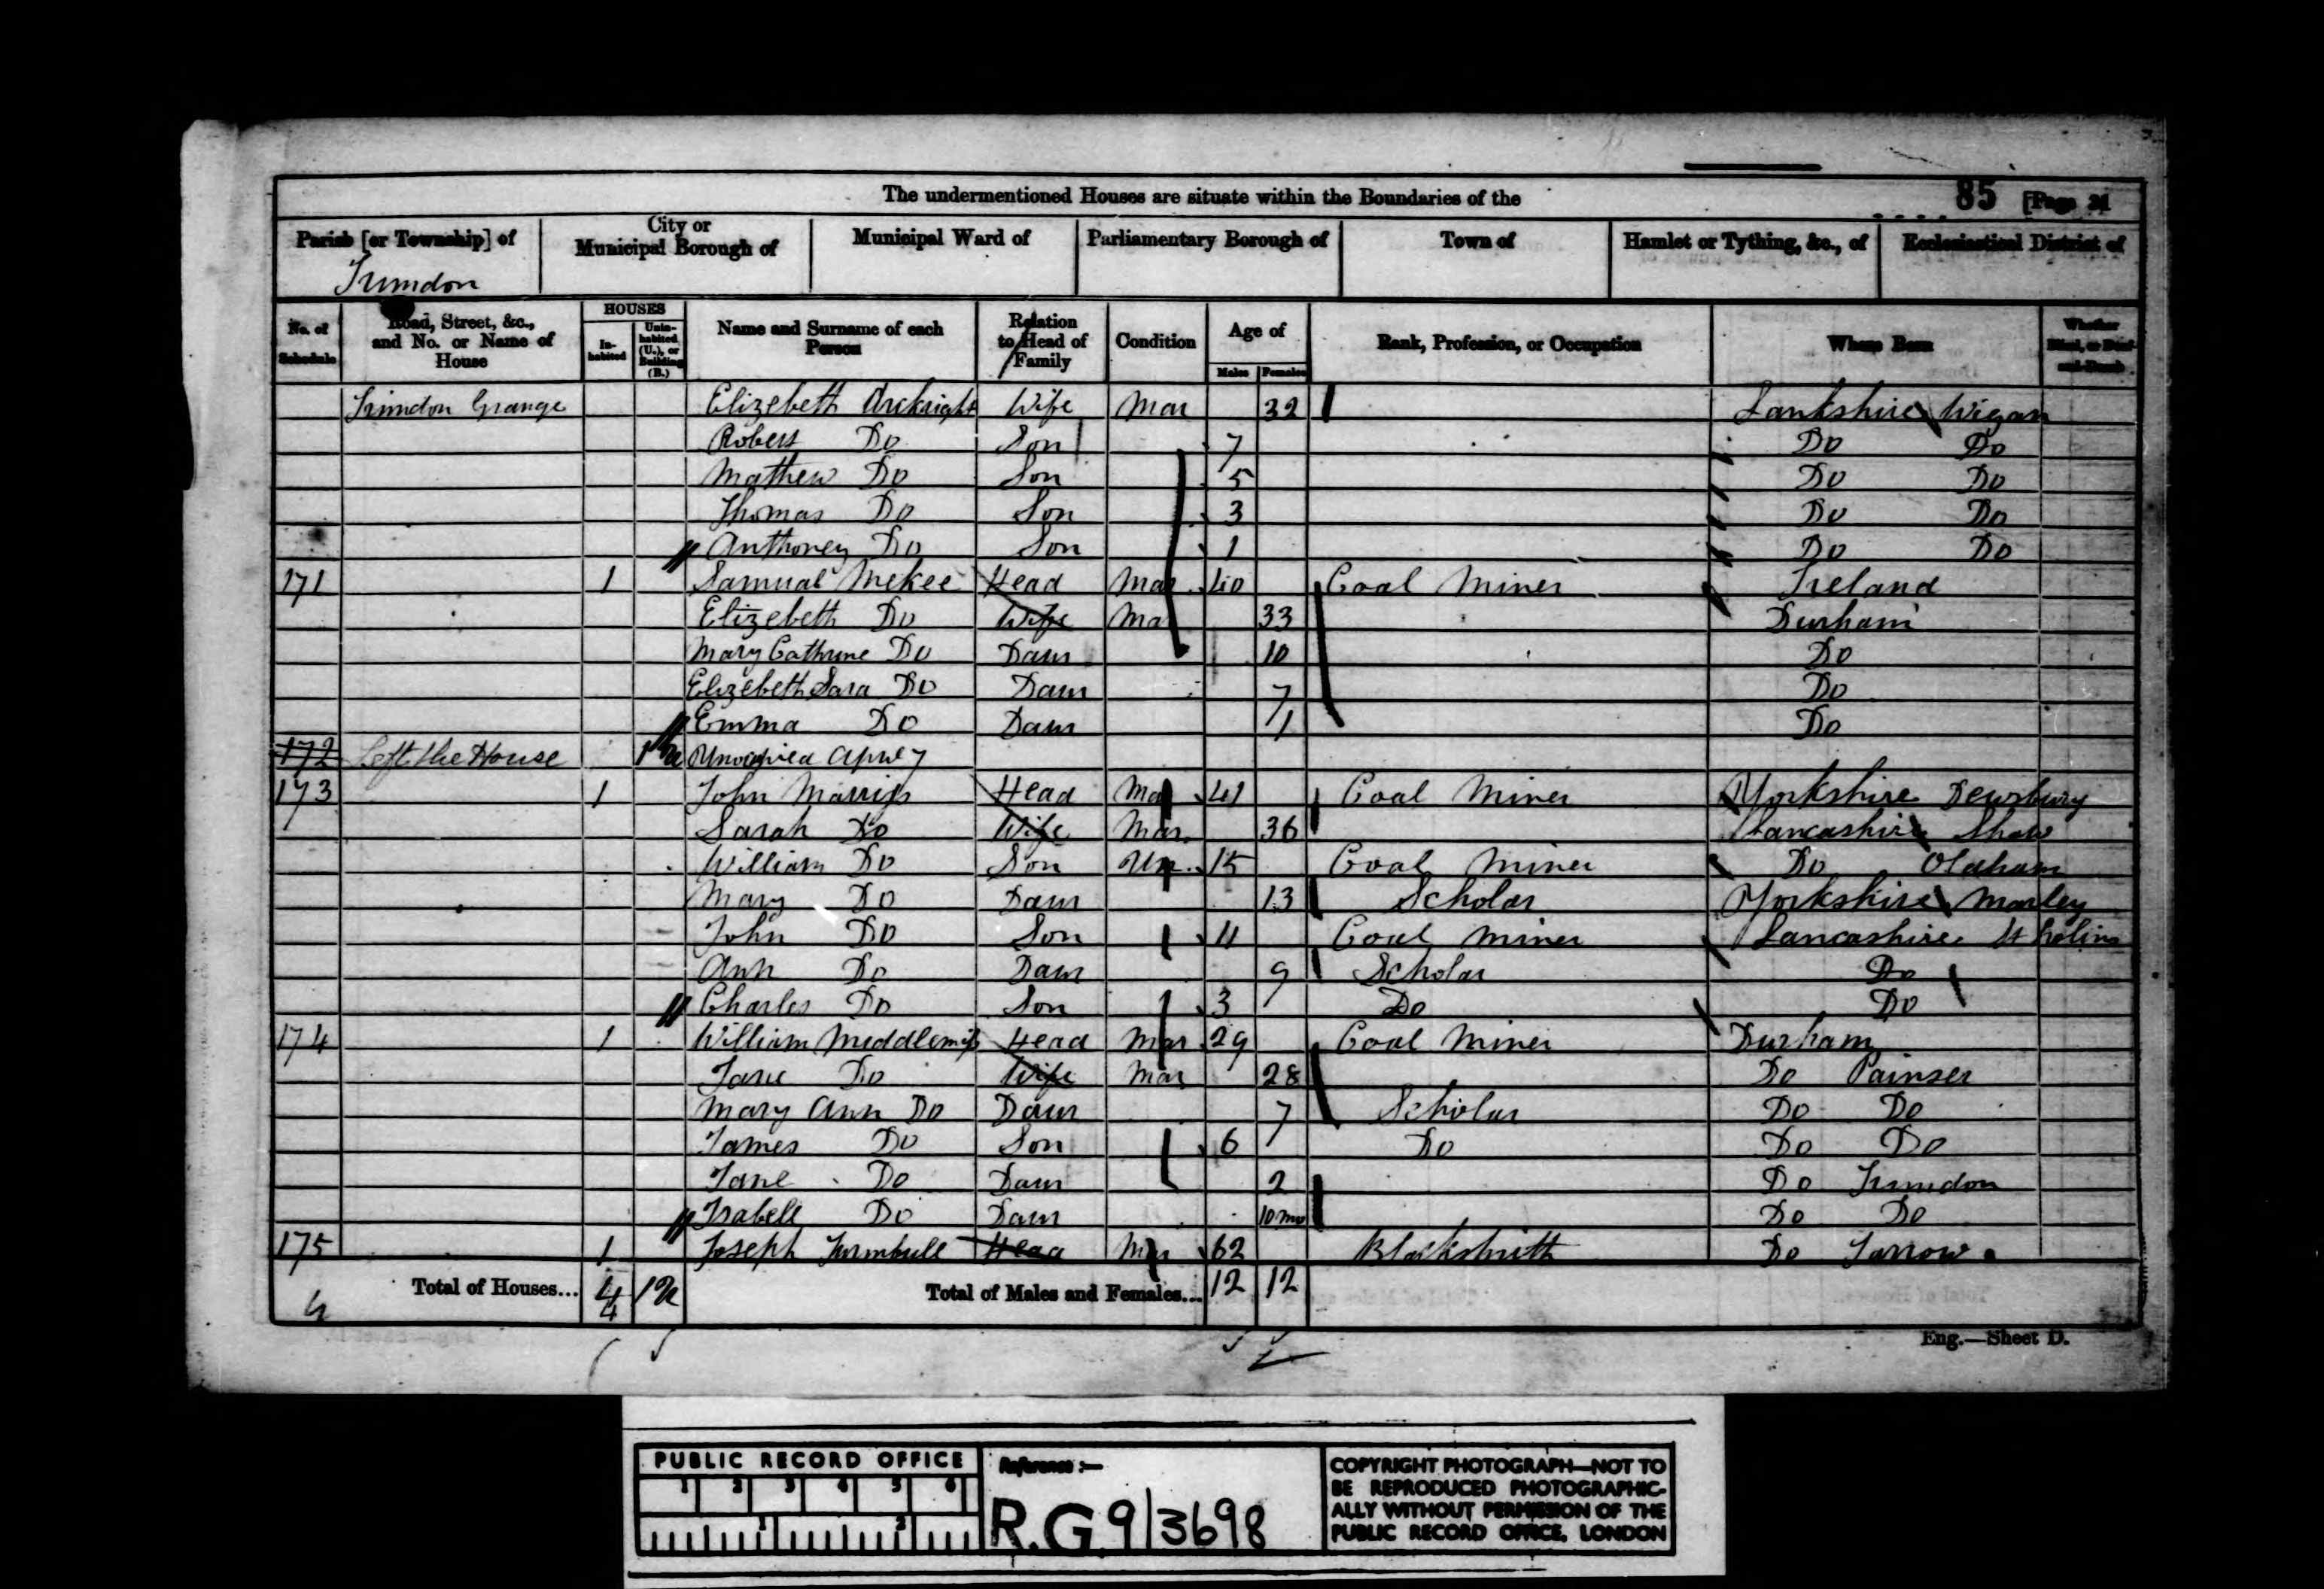 The undermentioned Houses are situate within the Boundaries of the 85 [Page 21
Parish [or Township] of City or Municipal Borough of Municipal Ward of Parliamentary Borough of Town of Hamlet or Tything, &c., of Ecclesiastical District of
Trimdon
No. of Schedule Road, Street, &c., and No. or Name of House HOUSES In-habited Unin-habited (U.), or Building (B.) Name and Surname of each Person Relation to Head of Family Condition Age of Males Females Rank, Profession, or Occupation Where Born Whether Blind, or Deaf-and-Dumb
Trimdon Grange Elizebeth Arckright Wife Mar 32 Lankshire Wigan
Robert Do Son 7 Do Do
Mathew Do Son 5 Do Do
Thomas Do Son 3 Do Do
Anthoney Do Son 1 Do Do
171 1 Samual Mckee Head Mar 40 Coal Miner Ireland
Elizebeth Do Wife Mar 33 Durham
Mary Cathrine Do Daur 10 Do
Elizebeth Sara Do Daur 7 Do
Emma Do Daur 1 Do
172 Left the House 1 u
173 1 John Marriss Head Mar 41 Coal Miner Yorkshire Dewsbury
Sarah Do Wife Mar 36 Lancashire Shaw
William Do Son Un 15 Coal Miner Do Oldham
Mary Do Daur 13 Scholar Yorkshire Marley
John Do Son 11 Coal Miner Lancashire St
Ann Do Daur 9 Scholar Do
Charles Do Son 3 Do Do
174 1 William Middlemiss Head Mar 29 Coal Miner Durham
Jane Do Wife Mar 28 Do Painser
Mary Ann Do Daur 7 Scholar Do Do
James Do Son 6 Do Do Do
Jane Do Daur 2 Do Trimdon
Isabell Do Daur 10 mo Do Do
175 1 Joseph Turnbull Head Mar 62 Blacksmith Do Jarrow
4 Total of Houses... 4 1 u Total of Males and Females... 12 12
4
Eng.—Sheet D.
PUBLIC RECORD OFFICE
1 2 3 4 5 6
1 2
Reference :—
R.G. 9/3698
COPYRIGHT PHOTOGRAPH—NOT TO
BE REPRODUCED PHOTOGRAPHIC-
ALLY WITHOUT PERMISSION OF THE
PUBLIC RECORD OFFICE, LONDON